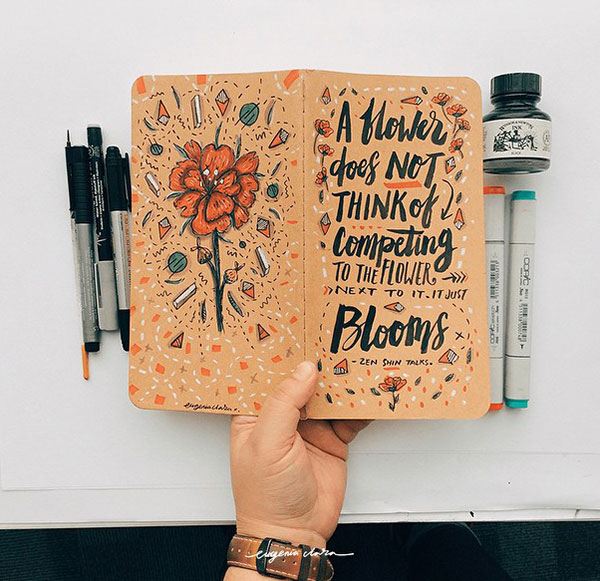 A flower
does NOT
THINK of
Competing
TO THE FLOWER
NEXT TO IT. IT JUST
Blooms
- ZEN SHIN TALKS -
eugenia clara
INK
copic
copic
eugenia clara